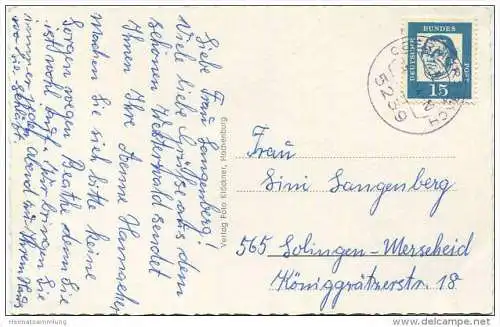 Liebe Frau Langenberg!
Viele liebe Grüße aus dem
schönen Westerwald sendet
Ihnen Ihre Hanne
Machen Sie sich bitte keine
Sorgen wegen Beathe denn Sie
ist wohl auf. Wir bringen Sie
immer jeden abend zu Ihrem Haus
wo Sie schläft.
Verlag Foto Klöckner, Hachenburg
DEUTSCHE BUNDES POST
15
5239
Frau
Sini Langenberg
565 Solingen-Merscheid
Königgrätzerstr. 18
Heimatsammlung